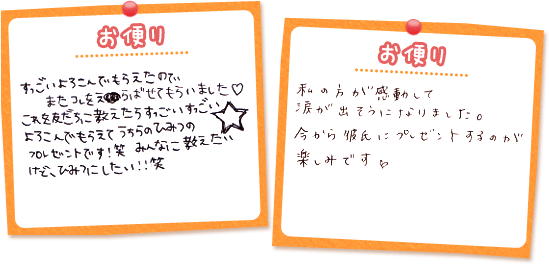 お便り
すっごいよろこんでもらえたのでぃ
またコレをえらばせてもらいました♡
これを友だちに教えたらすっごいすっごい
よろこんでもらえてうちらのひみつの
プレゼントです！笑 みんなに教えたい
けど、ひみつにしたい！！笑
お便り
私の方が感動して
涙が出そうになりました。
今から彼氏にプレゼントするのが
楽しみです♡